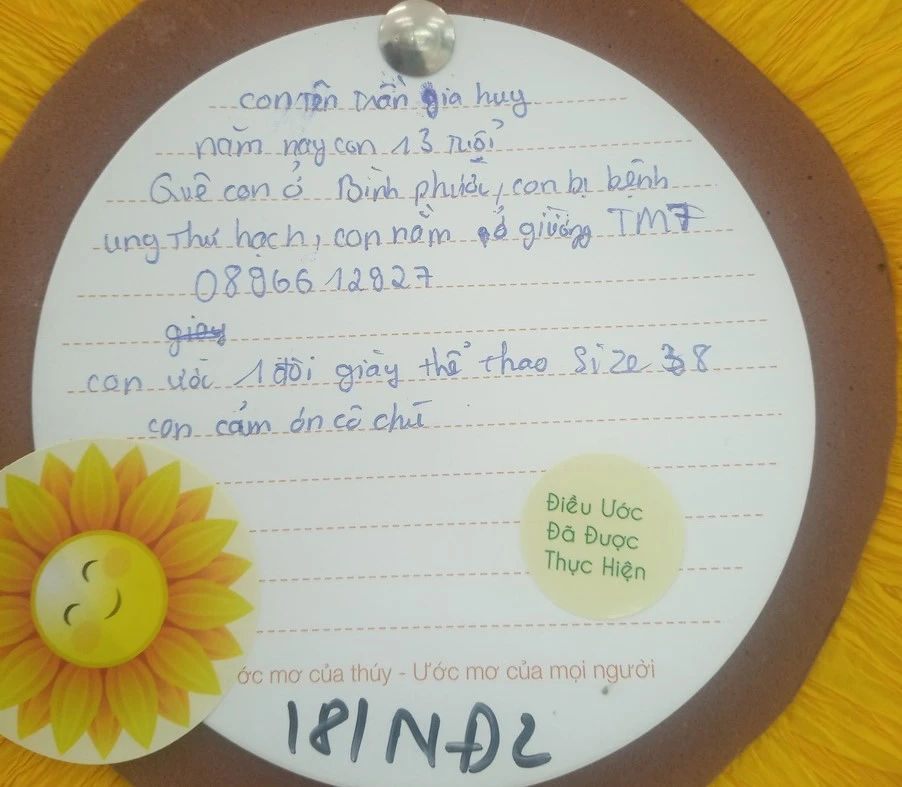 con tên trần gia huy
năm nay con 13 tuổi
Quê con ở Bình phước, con bị bệnh
ung Thư hạch, con nằm ở giường TM7
0896612927
giay
con ước 1 đôi giày thể thao Size 38
con cảm ơn cô chú
Điều Ước
Đã Được
Thực Hiện
ớc mơ của thúy - Ước mơ của mọi người
181NĐ2